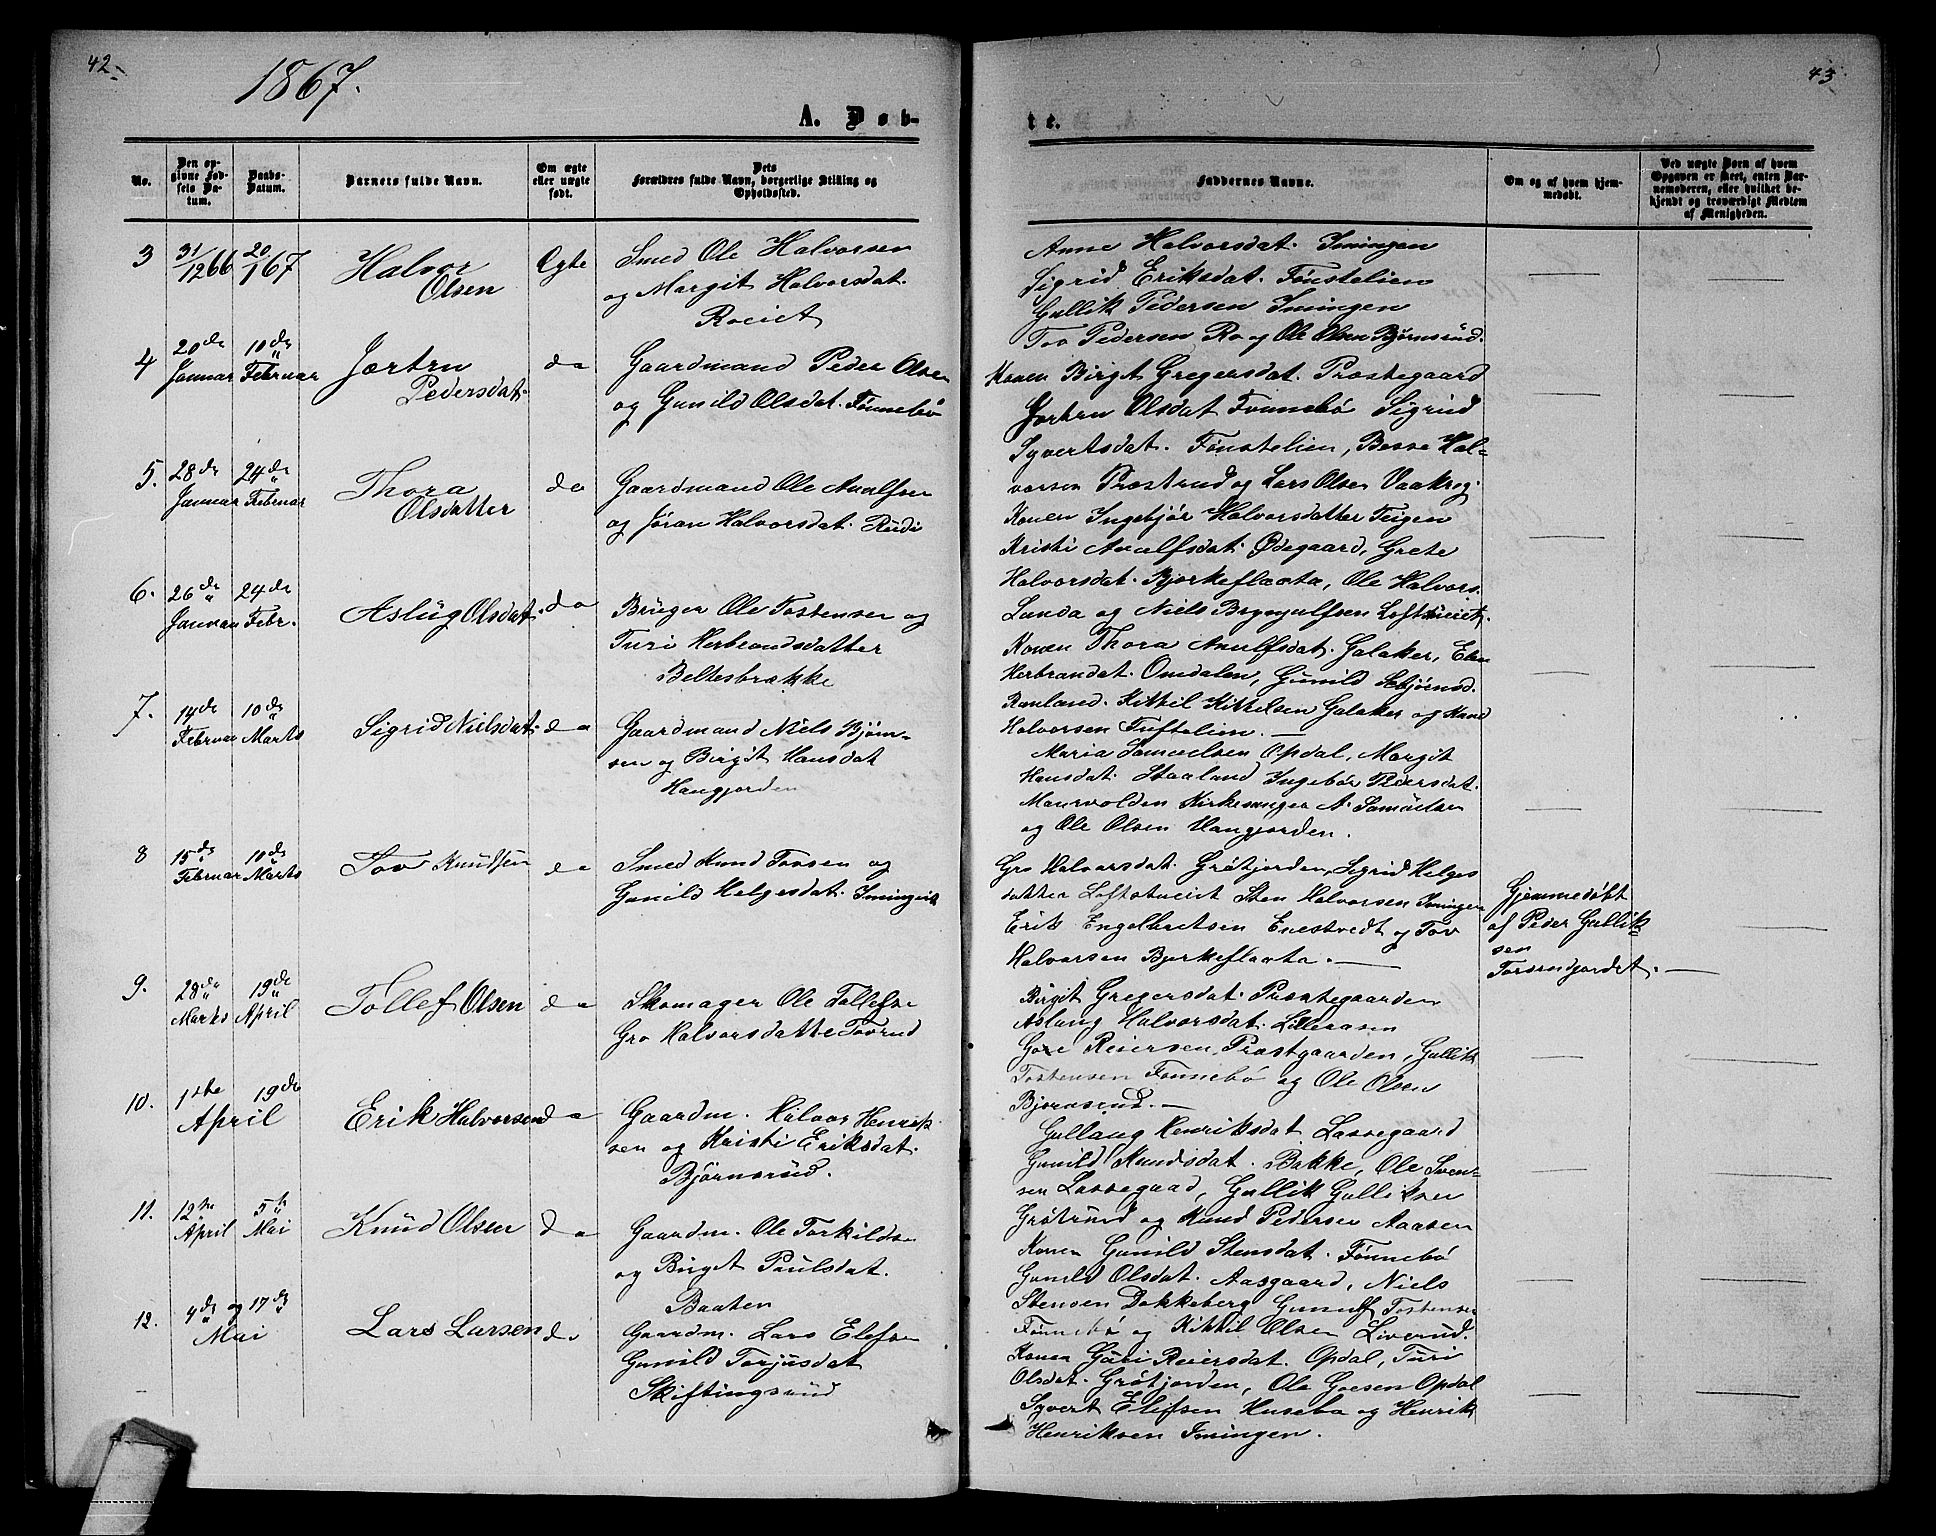 42
1867.
A. Døb-
No.
Den opgivne Fødsels Datum.
Daabs-Datum.
Barnets fulde Navn.
Om ægte eller uægte født.
Dets Forældres fulde Navn, borgerlige Stilling og Opholdssted.
3
31/12 66
20/1 67
Halvor
Olsen
Egte
Smed Ole Halvorsen
og Margit Halvorsdat.
Roeiet
4
20de
Januar
10de
Februar
Jørtru
Pedersdat.
do
Gaardmand Peder Olsen
og Gunild Olsdat. Fønnebø
5.
28de
Januar
24de
Februar
Thora
Olsdatter
do
Gaardmand Ole Anulfsen
og Jøran Halvorsdat. Rudi
6.
26de
Januar
24de
Febr.
Aslüg Olsdat.
do
Brüger Ole Tostensen og
Turi Herbrandsdatter
Beltesbrække
7.
14de
Februar
10de
Marts
Sigrid Nielsdat.
do
Gaardmand Niels Bjørn-
sen og Birgit Hansdat
Haugjorden
8
15de
Februar
10de
Marts
Tov Knudsen
do
Smed Knud Tovsen og
Gunild Helgesdat. Imingeie
9.
28de
Marts
19de
April
Tollef Olsen
do
Skomager Ole Tollefse
Gro Halvorsdatte Tovrud
10.
1ste
April
19de
Erik Halvorsen
do
Gaardm. Halvor Henrik-
sen og Kristi Eriksdat.
Bjørnsrud.
11.
12te
April
5te
Mai
Knud Olsen
do
Gaardm. Ole Torkildse
og Birget Paulsdat.
Baaten
12.
4de og 17de
Mai
Lars Larsen
do
Gaardm. Lars Elefse
Gunild Torjusdat
Skiftingsrud
43
te.
Faddernes Navne.
Om og af hvem hjemmedøbt.
Ved uægte Børn af hvem Opgaven er skeet, enten Barnemoderen, eller hvilket bekjendt og troværdigt Medlem af Menigheden.
Anne Halvorsdat. Imingen
Sigrid Eriksdat. Fønstelien
Gullik Pedersen Imingen
Tov Pedersen Ro og Ole Olsen Bjørnsrud.
Konen Birgit Gregersdat. Præstegaard
Jørtru Olsdat Fonnebø Sigrid
Syvertsdat. Fønstelien, Bosse Hal-
vorsen Præstrud og Lars Olsen Vaakreg.
Konen Ingebjør Halvorsdatter Teigen
Kristi Anulfsdat. Ødegaard, Grete
Halvorsdat. Bjørkeflaata, Ole Halvors.
Lunda og Niels Brynjulfsen Loftsteiet,
Konen Thora Anulfsdat. Galaker,
Herbrandat. Omdalen, Gunild
Rauland. Kittil Kittelsen Galaker og Knud
Halvorsen Tuftelien.
Maria Samuelsen Opdal, Margit
Hansdat. Staaland Ingebør Pedersdat.
Maurvolden Kirkesanger A. Samuelsen
og Ole Olsen Haugjorden.
Gro Halvorsdat. Grøtjorden, Sigrid Helges
datter Loftsteiet Sten Halvorsen Imingen
Erik Engelbretsen Enestvedt og Tov
Halvorsen Bjørkeflaata.
Gjemmedøbt
af Peder Gullik-
sen
Torsendjordet.
Birgit Gregersdat. Præstegaarden
Aslaug Halvorsdat. Lilleaasen
Gore Reiersen, Præstgaarden, Gullik
Tostensen Fonnebø og Ole Olsen
Bjørnsrud.
Gullaug Henriksdat. Lassegaard
Gunild Knudsdat. Bakke, Ole Sven-
sen Lassegaad, Gullik Gulliksen
Grøtrud og Knud Pedersen Aaasen
Konen Gunild Stensdat. Fønnebø
Gunild Olsdat. Aasgaard, Niels
Stensen Dokkeberg Gunulf Tostense
Fønnebø og Kittil Olsen Liverud.
Konen Guri Reiersdat. Opdal, Turi
Olsdat. Grøtjorden, Ole Goesen Opdal
Syvert Elefsen Husebø og Henrik
Henriksen Imingen.